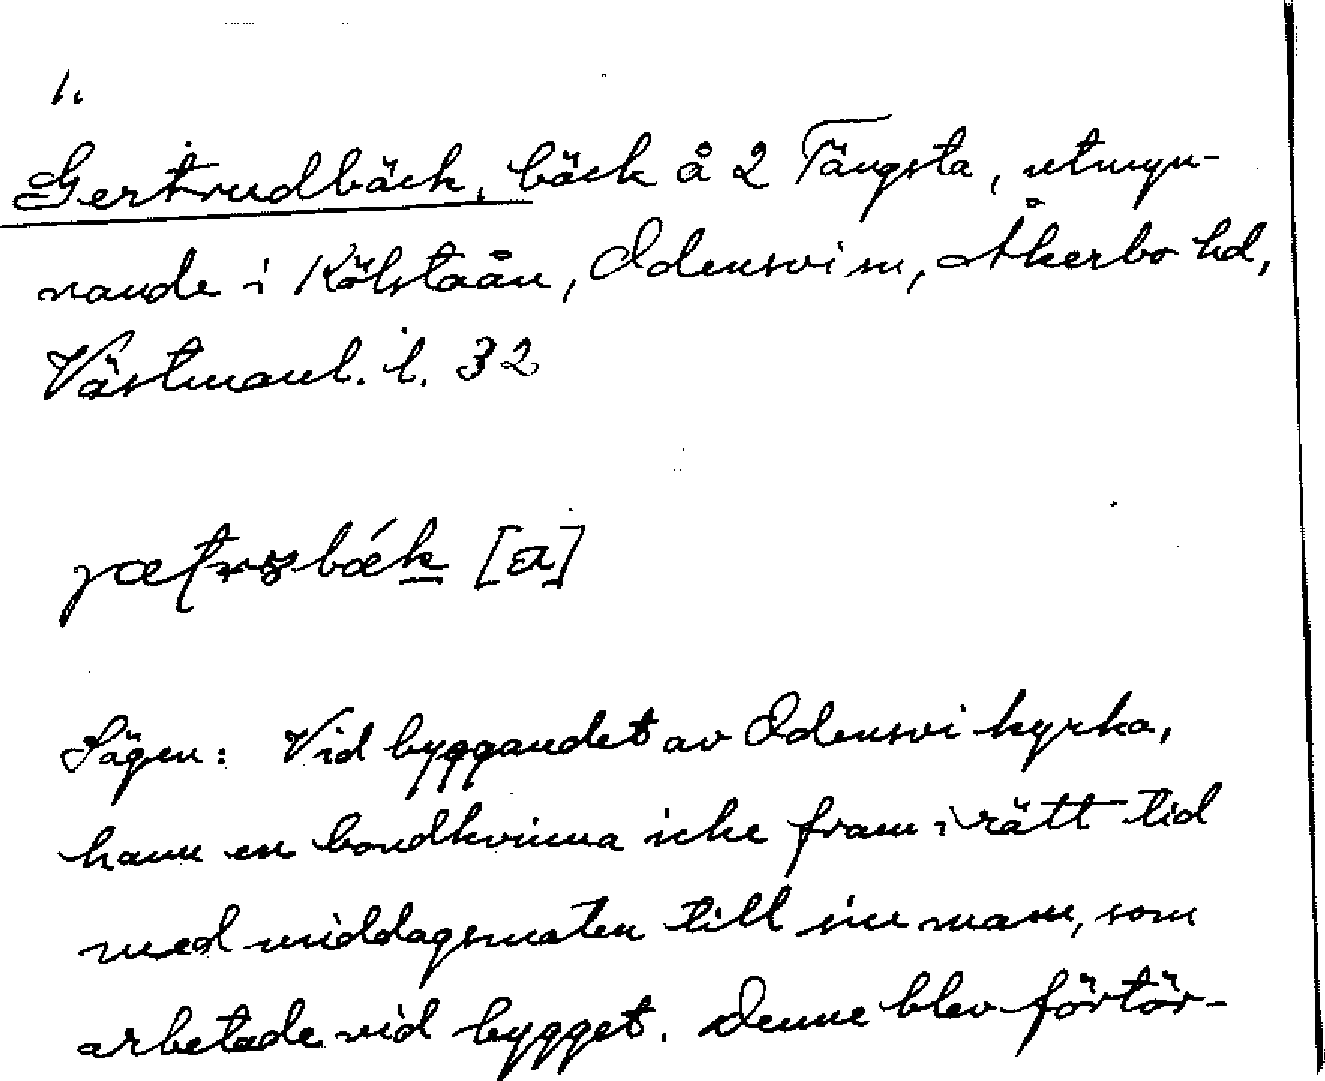 1.
Gertrudbäck, bäck å 2 Tängsta, utmyn-
nande i Kölstaån, Odensvi sn, Åkerbo hd,
Västmanl. l. 32
[a]
Sägen: Vid byggandet av Odensvi kyrka,
hann en bondkvinna icke fram i rätt tid
med middagsmaten till sin man, som
arbetade vid bygget. Denne blev förtör-